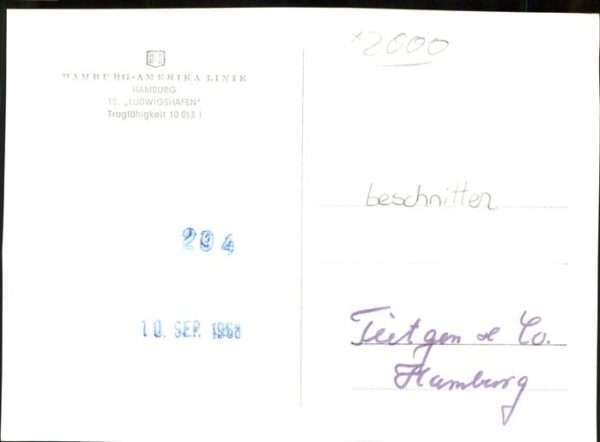 HAMBURG-AMERIKA LINIE
HAMBURG
TS. „LUDWIGSHAFEN"
Tragfähigkeit 10 013 t
294
10. SEP. 1968
x2000
beschnitten
Tietgen & Co.
Hamburg